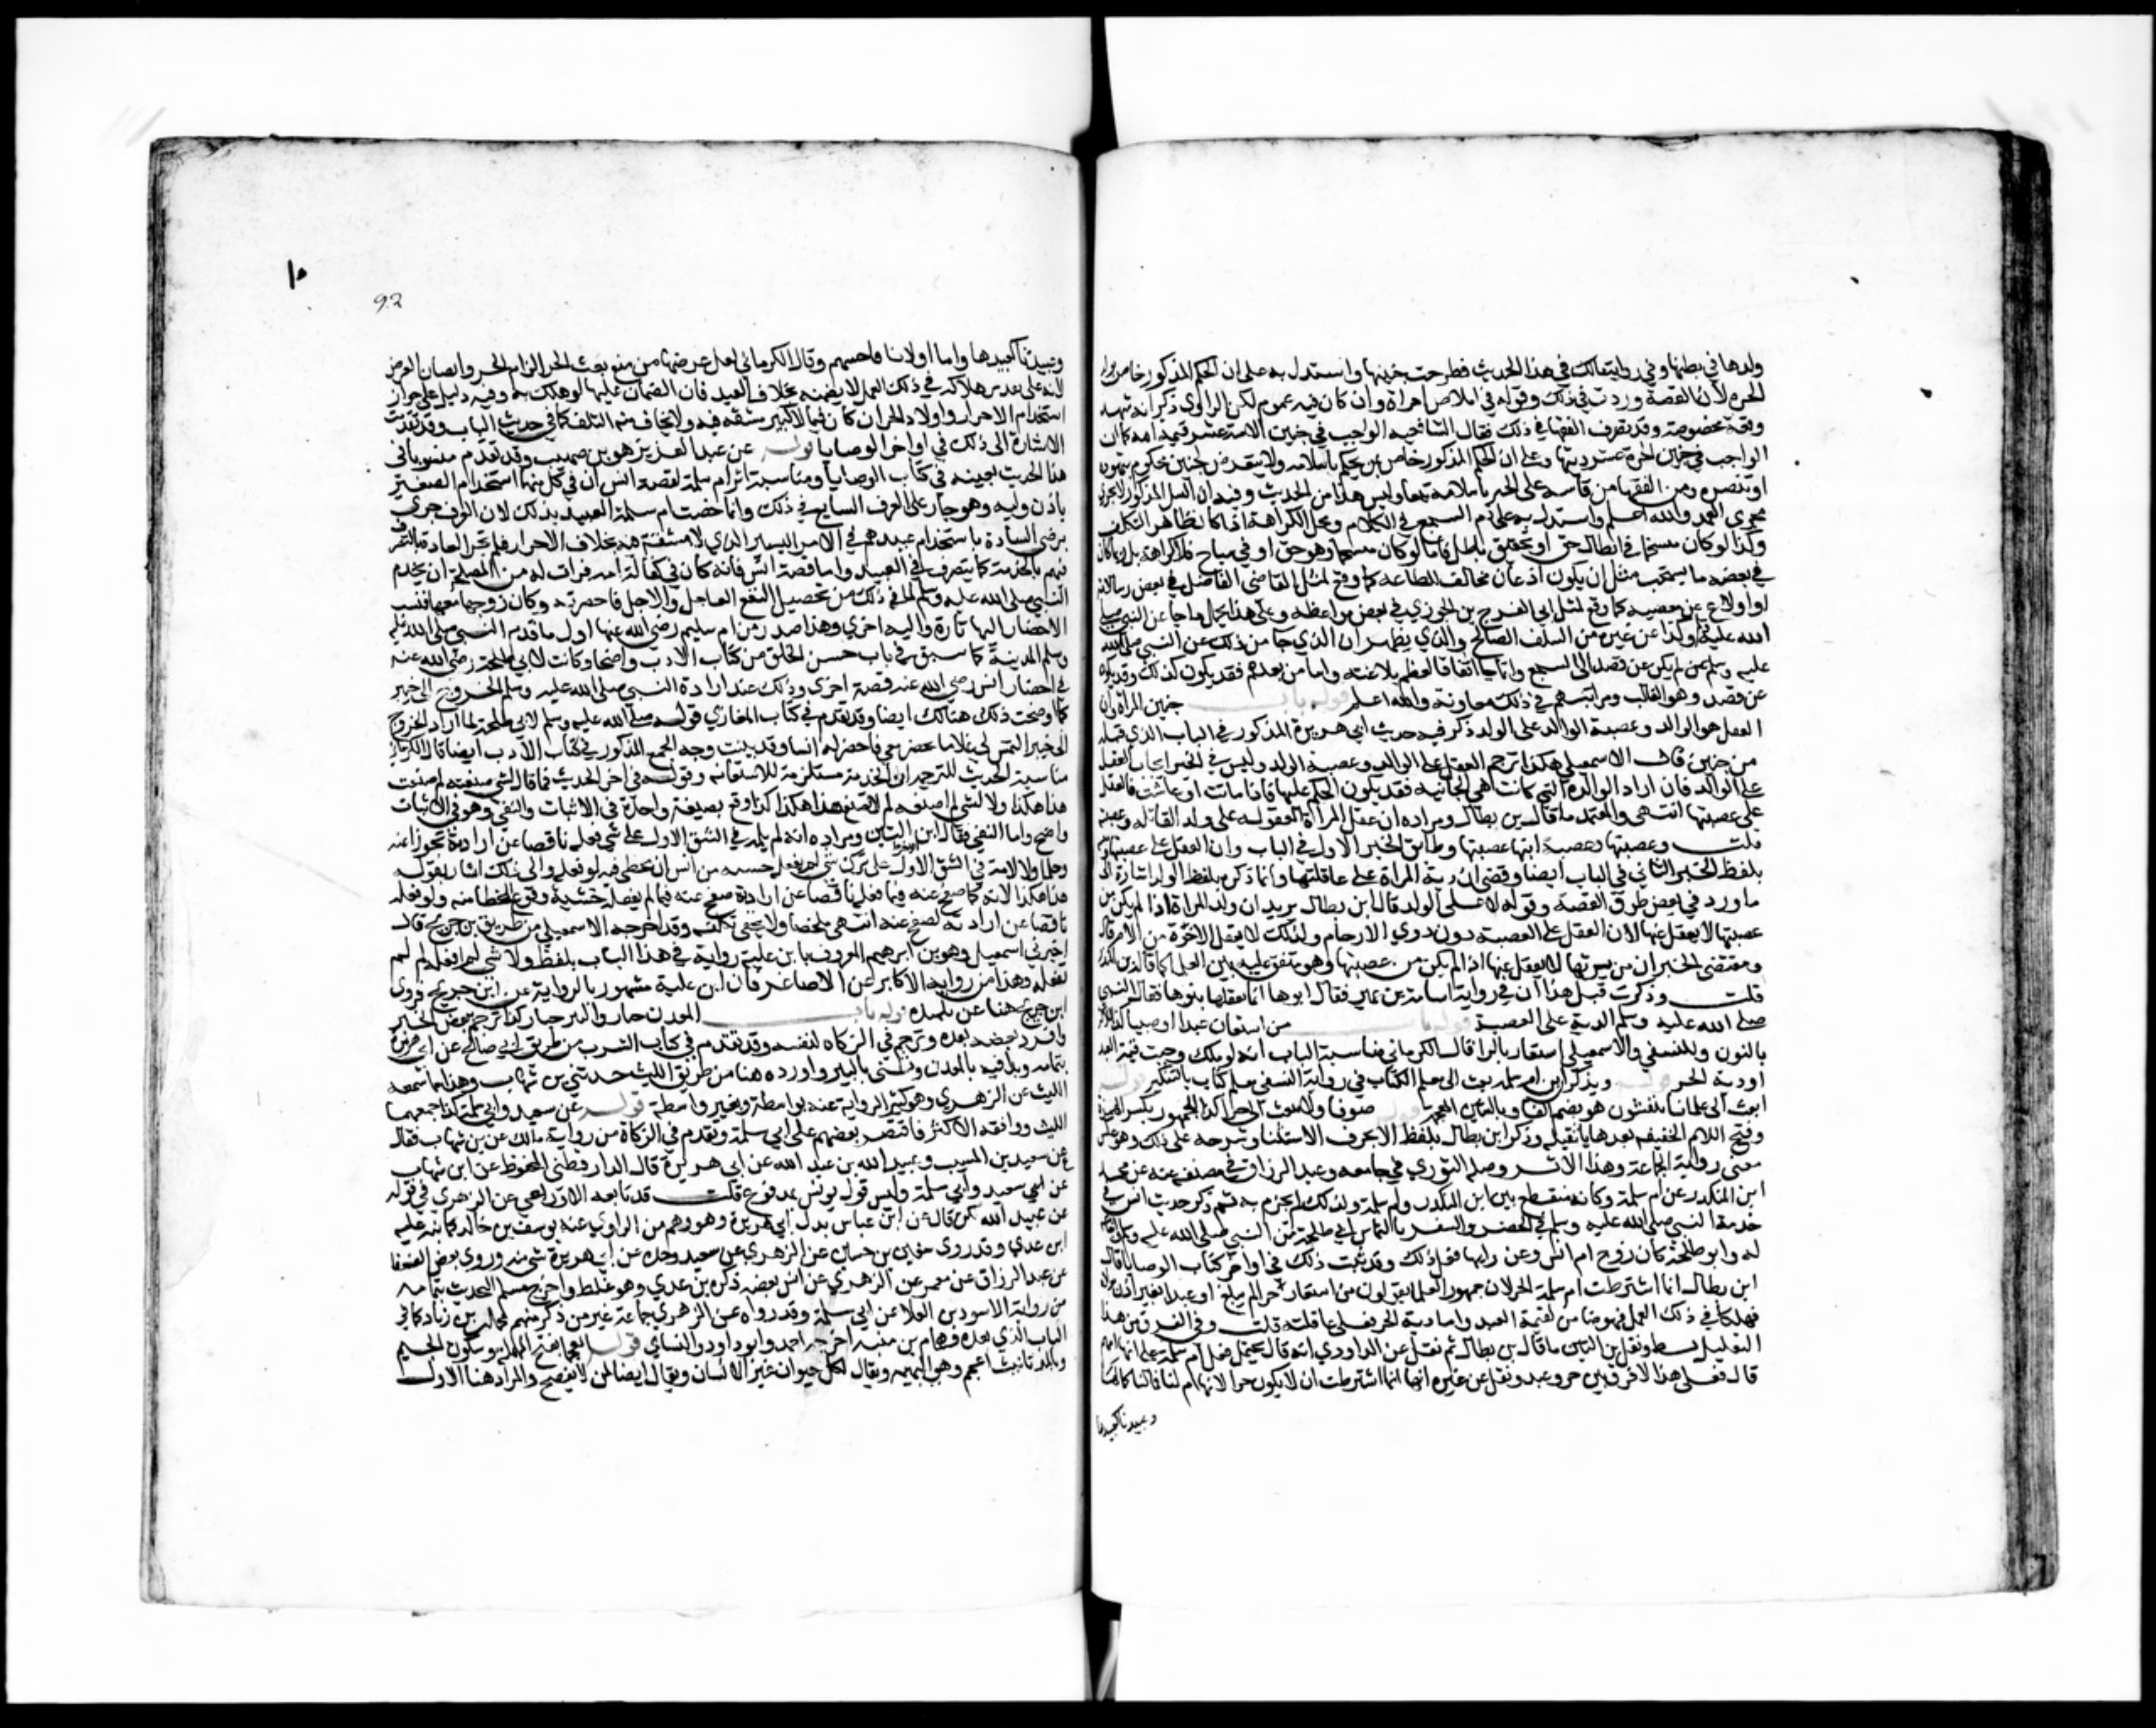 ولدها في بطنها وفي رواية مالك في هذا الحديث فطرحت جنينها واستدل به على ان الحكم المذكور خاص بولد
الحرة لان القصة وردت في ذلك وقوله في املاص المراة وان كان فيه عموم لكن الراوي ذكر انه شهد
وقعة مخصوصة وقد تصرف الفقها في ذلك فقال الشافعيه الواجب في جنين الامة عشر قيمة امه كما ان
الواجب في جنين الحرة عشر ديتها وعلى ان الحكم المذكور خاص بمن يحكم باسلامه ولا يتعرض لجنين محكوم بتهوده
او تنصره ومن الفقها من قاسه على الجنين المحكوم باسلامه تبعا وليس هذا من الحديث وفيه ان القتل المذكور لا يجري
مجرى العمد والله اعلم واستدل به على ذم السجع في الكلام ومحل الكراهة اذا كان ظاهر التكلف
وكذا لو كان منسجما في ابطال حق او تحقيق باطل فاما لو كان منسجما وهو حق او في مباح فلا كراهة بل ربما كان
في بعضه ما يستحب مثل ان يكون فيه اذعان مخالف للطاعة كما وقع لمثل القاضي الفاضل في بعض رسائله
او اقلاع عن معصية كما وقع لمثل ابي الفرج بن الجوزي في بعض مواعظه وعلى هذا يحمل ما جا عن النبي صلى
الله عليه وسلم وكذا عن غيره من السلف الصالح والذي يظهر ان الذي جا من ذلك عن النبي صلى الله
عليه وسلم لم يكن عن قصد الى السجع وانما جا اتفاقا لعظم بلاغته واما من بعده فقد يكون كذلك وقد يكون
عن قصد وهو الغالب ومراتبهم في ذلك متفاوتة والله اعلم قوله باب جنين المراة وان
العقل هو الوالد وعصبة الوالد لا على الولد ذكر فيه حديث ابي هريرة المذكور في الباب الذي قبله
من وجهين قال الاسمعيلي هكذا ترجم العقل على الوالد وعصبة الوالد وليس في الخبر ايجاب العقل
على الوالد فان اراد الوالدة التي كانت هي الجانية فقد يكون الحكم عليها فاذا ماتت او عاشت فالعقل
على عصبتها انتهى والمعتمد ما قال ابن بطال ومراده ان عقل المراة المقتولة على والد القاتلة وعصبته
قلت وعصبتها وعصبة ابيها عصبتها وطابق الخبر الاول في الباب وان العقل على عصبتها
بلفظ الخبر الثاني في الباب ايضا وقضى ان دية المراة على عاقلتها وانما ذكره بلفظ الوالد اشارة الى
ما ورد في بعض طرق القصة وقوله لا على الولد قال ابن بطال يريد ان ولد المراة اذا لم يكن من
عصبتها لا يعقل عنها لان العقل على العصبة دون ذوي الارحام ولذلك لا يعقل الاخوة من الام قال
ومقتضى الخبر ان من يرثها لا يعقل عنها اذا لم يكن من عصبتها وهو متفق عليه بين العلما كما قاله ابن المنذر
قلت وذكرت قبل هذا ان في رواية اسامة بن عمير فقال ابوها انما يعقلها بنوها فقال النبي
صلى الله عليه وسلم الدية على العصبة قوله باب من استعان عبدا او صبيا كذا للاكثر
بالنون وللنسفي والاسمعيلي استعار بالرا قال الكرماني مناسبة الباب انه لو هلك وجبت قيمة العبد
او دية الحر قوله ويذكر ان ام سلمة بعثت الى معلم الكتاب في رواية النسفي معلم كتاب بالتنكير قوله
ابعث الي غلمانا ينفشون هو بضم الفا وبالشين المعجمة قوله صوفا ولا تبعث الي حرا كذا للجمهور بكسر الهمزة
وفتح اللام الخفيفة بعدها يا ثقيلة وذكره ابن بطال بلفظ الا بحرف الاستثنا وشرحه على ذلك وهو عكس
معنى رواية الجماعة وهذا الاثر وصله الثوري في جامعه وعبد الرزاق في مصنفه عنه عن محمد
ابن المنكدر عن ام سلمة وكانه منقطع بين ابن المنكدر وام سلمة ولذلك لم يجزم به ثم ذكر حديث انس في
خدمة النبي صلى الله عليه وسلم في الحضر والسفر بالتماس ابي طلحة من النبي صلى الله عليه وسلم
له وابو طلحة كان زوج ام انس وعن رايها فعل ذلك وقد بينت ذلك في اواخر كتاب الوصايا قال
ابن بطال انما اشترطت ام سلمة الحر لان جمهور العلما يقولون من استعان حرا لم يبلغ او عبدا بغير اذن مولاه
فهلكا في ذلك العمل فهو ضامن لقيمة العبد واما دية الحر فهي على عاقلته قلت وفي الفرق من هذا
التعليل نظر ونقل ابن التين ما قال ابن بطال ثم نقل عن الداودي انه قال يحتمل فعل ام سلمة على انها امهم
قال فعلى هذا لا فرق بين حر وعبد ونقل عن غيره انها انما اشترطت ان لا يكون حرا لانها ام لنا فمالنا كمالها
وعبيدنا كعبيدها
١٥
92
وعبيدنا كعبيدها واما اولادنا فاحسبهم وقال الكرماني لعل غرضها من منع بعث الحر الزام الحر وايصال العوض
لانه على تقدير هلاكه في ذلك العمل لا يضمنه بخلاف العبد فان الضمان عليها لو هلك به وفيه دليل على جواز
استخدام الاحرار واولاد الجيران كان فيما لا كبير مشقة فيه ولا يخاف منه التلف كما في حديث الباب وقد تقدمت
الاشارة الى ذلك في اواخر الوصايا قوله عن عبد العزيز هو بن صهيب وقد تقدم منسوبا في
هذا الحديث بعينه في كتاب الوصايا ومناسبة اثر ام سلمة لقصة انس ان في كل منهما استخدام الصغير
باذن وليه وهو جار على العرف السايغ في ذلك وانما خصت ام سلمة العبيد بذلك لان العرف جرى
برضى السادة باستخدام عبيدهم في الامر اليسير الذي لا مشقة فيه بخلاف الاحرار فلم تجر العادة بالتصرف
فيهم بالخدمة كما يتصرف في العبيد واما قصة انس فانه كان في كفالة امه فرات له من المصلحة ان يخدم
النبي صلى الله عليه وسلم لما في ذلك من تحصيل النفع العاجل والاجل فاحضرته وكان زوجها معها فنسب
الاحضار اليها تارة واليه اخرى وهذا صدر من ام سليم رضي الله عنها اول ما قدم النبي صلى الله عليه
وسلم المدينة كما سبق في باب حسن الخلق من كتاب الادب واضحا وكانت لابي طلحة رضي الله عنه
في احضار انس رضي الله عنه قصة اخرى وذلك عند ارادة النبي صلى الله عليه وسلم الخروج الى خيبر
كما اوضحت ذلك هنالك ايضا وقد تقدم في كتاب المغازي قوله صلى الله عليه وسلم لابي طلحة لما اراد الخروج
الى خيبر التمس لي غلاما يخرج معي فاحضر له انسا وقد بينت وجه الجمع المذكور في كتاب الادب ايضا قال الكرماني
مناسبة الحديث للترجمة ان الخدمة مستلزمة للاستعانة وقوله في اخر الحديث فما قال لشي صنعته لم صنعت
هذا هكذا ولا لشي لم اصنعه لم لم تصنع هذا هكذا كذا وقع بصيغة واحدة في الاثبات والنفي وهو في الاثبات
واضح واما النفي فقال ابن التين ومراده انه لم يلمه في الشق الاول على شي فعله ناقصا عن ارادته تجوزا عنه
وحلما ولا لامه في الشق الاول على ترك شي لم يفعله خشية من انس ان يخطي فيه لو فعله والى ذلك اشار بقوله
هذا هكذا لانه كما صفح عنه فيما فعله ناقصا عن ارادته صفح عنه فيما لم يفعله خشية وقوع الخطا منه ولو فعله
ناقصا عن ارادته لصفح عنه انتهى ملخصا ولا يخفى تكلفه وقد اخرجه الاسمعيلي من طريق ابن جريج قال
اخبرني اسمعيل وهو بن ابرهيم المعروف بابن علية روايه في هذا الباب بلفظ ولا شي لم افعله لم لم
تفعله وهذا من رواية الاكابر عن الاصاغر فان ابن علية مشهور بالرواية عن ابن جريج فروى
ابن جريج هنا عن تلميذه قوله باب المعدن جبار والبير جبار كذا ترجم ببعض الخبر
وافرد بعضه بعده وترجم في الزكاة لنفسه وقد تقدم في كتاب الشرب من طريق ابي صالح عن ابي هريرة
بتمامه وبدا فيه بالمعدن وثنى بالبير واورده هنا من طريق الليث حدثني بن شهاب وهذا مما سمعه
الليث عن الزهري وهو كثير الرواية عنه بواسطة وبغير واسطة قوله عن سعيد وابي سلمة كذا جمعهما
الليث ووافقه الاكثر فاقتصر بعضهم على ابي سلمة وتقدم في الزكاة من رواية مالك عن بن شهاب فقال
عن سعيد بن المسيب وعبيد الله بن عبد الله عن ابي هريرة قال الدارقطني المحفوظ عن ابن شهاب
عن سعيد وابي سلمة وليس قول يونس بمدفوع قلت قد تابعه الاوزاعي عن الزهري في قوله
عن عبيد الله لكن قال عن ابن عباس بدل ابي هريرة وهو وهم من الراوي عنه يوسف بن خالد كما نبه عليه
ابن عدي وقد روى سفيان بن حسين عن الزهري عن سعيد وحده عن ابي هريرة شي منه وروى بعض الضعفا
عن عبد الرزاق عن معمر عن الزهري عن انس بعضه ذكره بن عدي وهو غلط واخرج مسلم الحديث بتمامه
من رواية الاسود بن العلا عن ابي سلمة وقد رواه عن الزهري جماعة غير من ذكر منهم محمد بن زياد كما في
الباب الذي بعده وهمام بن منبه اخرجه احمد وابو داود والنساي قوله العجما بفتح المهملة وسكون الجيم
وبالمد تانيث اعجم وهي البهيمه ويقال لكل حيوان غير الانسان ويقال ايضا لمن لا يفصح والمراد هنا الاول